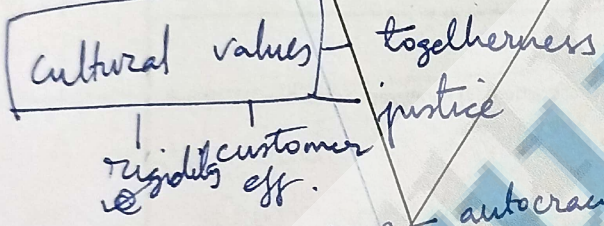 cultural values
togetherness
justice
rigidity
customer
eff.
autocrac